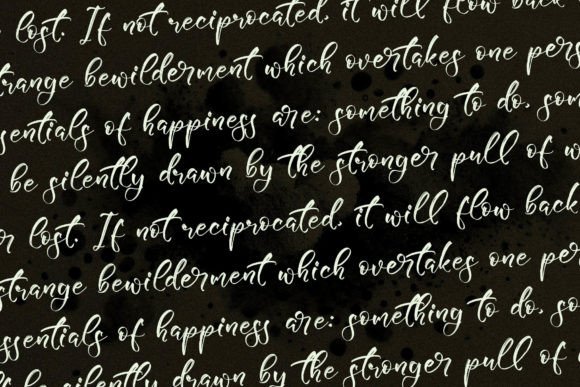 lost. If not reciprocated, it will flow back
strange bewilderment which overtakes one pers
ssentials of happiness are: something to do, som
be silently drawn by the stronger pull of w
r lost. If not reciprocated, it will flow back
strange bewilderment which overtakes one per
ssentials of happiness are: something to do, so
be silently drawn by the stronger pull of